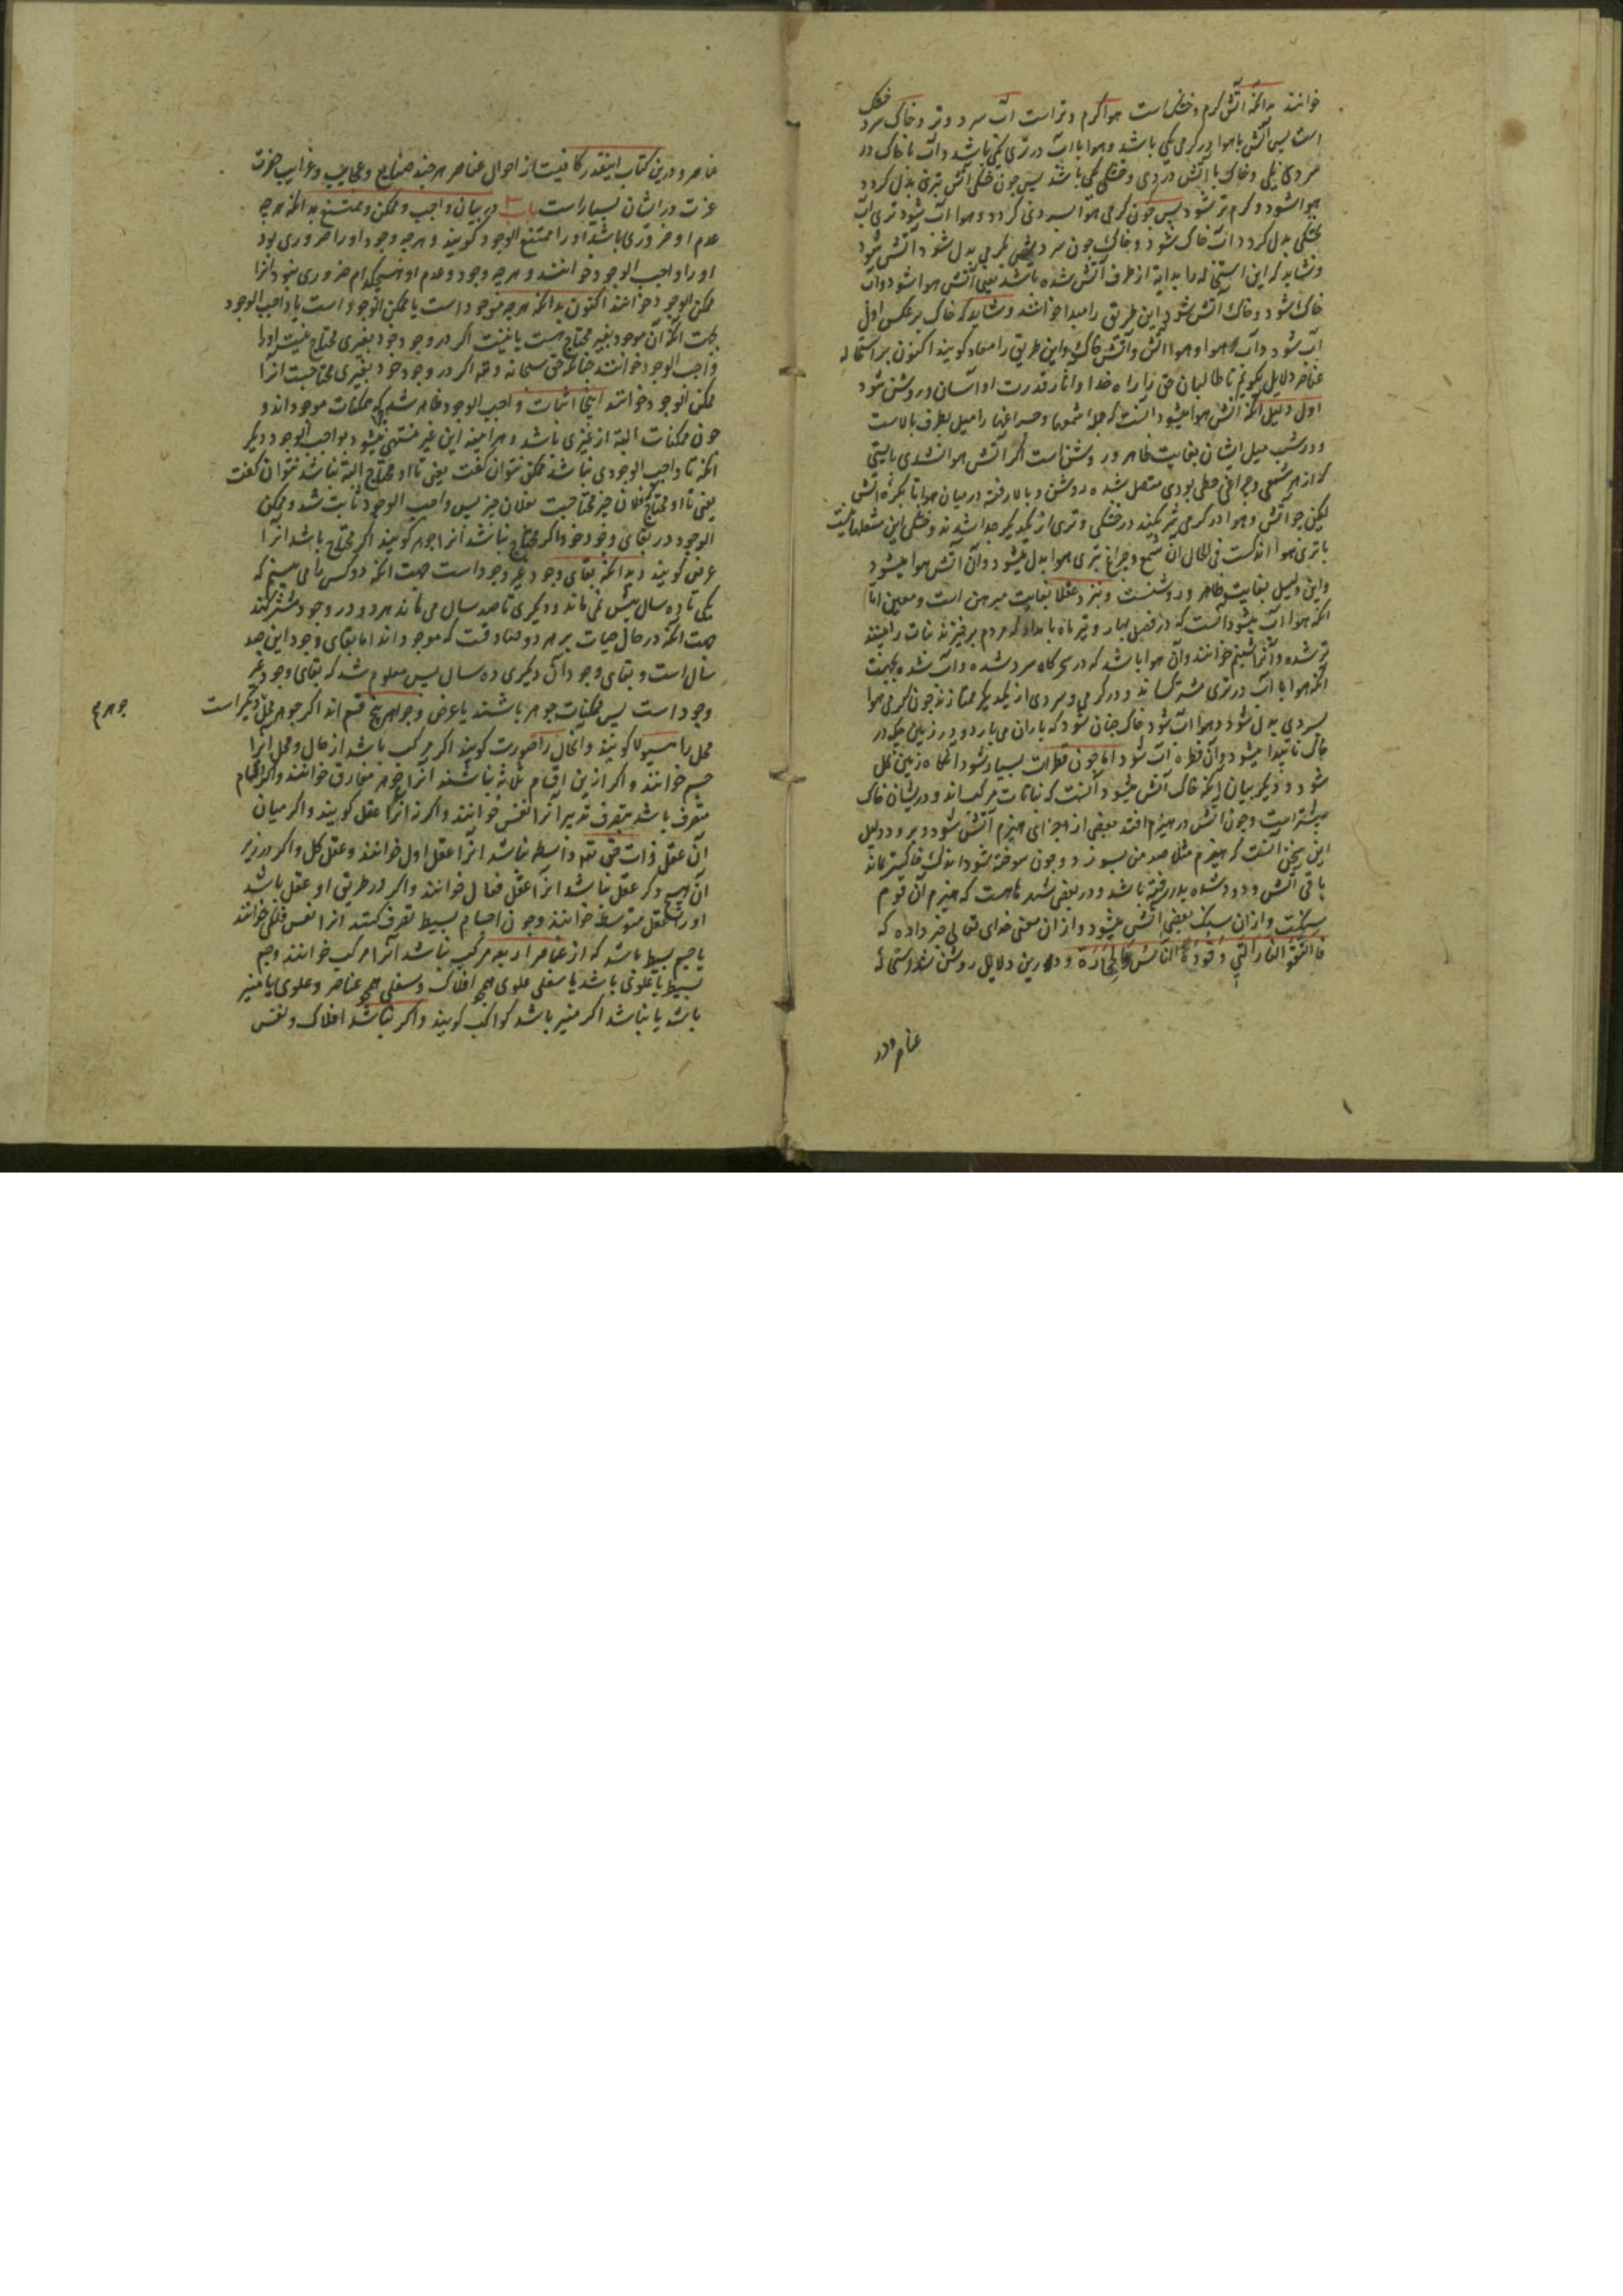 خوانند بدانکه آتش گرم و خشک است هوا گرم و تر است آب سرد و تر و خاک سرد خشک
است پس آتش با هوا در گرمی یکی باشد و هوا با آب در تری یکی باشد و آب با خاک در
سردی یکی و خاک با آتش در خشکی یکی باشد پس چون خشکی آتش بتری بدل گردد
هوا شود و گرم تر شود پس چون گرمی هوا بسردی گردد و هوا آب شود تری آب
بخشکی بدل گردد آب خاک شود و خاک چون سردیش بگرمی بدل شود آتش شود
و شاید که این استحاله را بدایة از طرف آتش شده باشد یعنی آتش هوا شود و آب
خاک شود و خاک آتش شود این طریق را مبدا خوانند و شاید که خاک بر عکس اول
آب شود و آب هوا و هوا آتش و آتش خاک و این طریق را معاد گویند اکنون بر استحاله
عناصر دلایل بگویم تا طالبان حق را راه خدا و آثار قدرت او آسان و روشن شود
اول دلیل آنکه آتش هوا میشود آنست که جمله شمعها و چراغها را میل بطرف بالاست
و در شب میل ایشان بغایت ظاهر و روشن است اگر آتش هوا نشدی بایستی
که از هر شمعی و چراغی خطی بودی متصل شده روشن و بالا رفته در میان هوا تا بکره آتش
لیکن چو آتش و هوا در گرمی شریکند در خشکی و تری از یکدیگر جدا شدند و خشکی این شعلها نیست
با تری هوا اندکست فی الحال آن شمع و چراغ بتری هوا بدل میشود و آن آتش هوا میشود
و این دلیل بغایت ظاهر و روشنست و نزد عقلا بغایت مبرهن است و معین اما
آنکه هوا آب میشود آنست که در فصل بهار و تیر ماه بامداد که مردم برخیزند نبات را بینند
تر شده و آنرا شبنم خوانند و آن هوا باشد که در سحرگاه سرد شده و آب شده بجهت
آنکه هوا با آب در تری مشترکست اند و در گرمی و سردی از یکدیگر ممتازند چون گرمی هوا
بسردی بدل شود و هوا آب شود خاک چنان شود که باران می بارد و بر زمین چکد در
خاک ناپیدا میشود و آن قطره آب شود اما چون قطرات بسیار شود آنگاه زمین گل
شود و دیگر بیان آنکه خاک آتش میشود آنست که نباتات مرکب اند و در ایشان خاک
بیشتر است و چون آتش در هیزم افتد بعضی از اجزای هیزم آتش شود و برود و دلیل
این سخن آنست که هیزم مثلا صد من بسوزد و چون سوخته شود اندک خاکستر بماند
باقی آتش و دود شده بالا رفته باشد و در بعضی شهرهاست که هیزم آن قوم
سنگست و از آن سنگ بعضی آتش میشود و از آن معنی خدای تعالی خبر داده که
فاتقوا النار التی وقودها الناس والحجارة و درین دلایل روشن شد استحالهٔ
عناصر و در
عناصر و درین کتاب اینقدر کافیست از احوال عناصر هرچند صنایع و عجایب و غرایب حضرت
عزت در ایشان بسیار است باب ۳ در بیان واجب و ممکن و ممتنع بدانکه هرچه
عدم او ضروری باشد او را ممتنع الوجود گویند و هرچه وجود او را ضروری بود
او را واجب الوجود خوانند و هرچه وجود و عدم او هیچکدام ضروری نبود آنرا
ممکن الوجود خوانند اکنون بدانکه هرچه موجود است یا ممکن الوجود است یا واجب الوجود
بجهت آنکه آن موجود بغیر محتاج هست یا نیست اگر در وجود خود بغیری محتاج نیست او را
واجب الوجود خوانند چنانکه حق سبحانه و تعالی و اگر در وجود خود بغیری محتاجست آنرا
ممکن الوجود خوانند اینجا اثبات واجب الوجود ظاهر شد که ممکنات موجود اند و
چون ممکنات البته از غیری باشد و هر آینه این غیر منتهی میشود بواجب الوجود دیگر
آنکه تا واجب الوجودی نباشد ممکن نتوان گفت یعنی تا او محتاج البته نباشد نتوان گفت
یعنی تا او محتاج بفلان چیز محتاجست بفلان چیز پس واجب الوجود ثابت شد و ممکن
الوجود در بقای وجود خود اگر محتاج نباشد آنرا جوهر گویند اگر محتاج باشد آنرا
عرض گویند و بدانکه بقای وجود غیر وجود است بجهت آنکه دو کس را می بینیم که
یکی تا ده سال بیش نمی ماند و دیگری تا صد سال می ماند هر دو در وجود مشترکند
بجهت آنکه در حال حیات بر هر دو صادقست که موجود اند اما بقای وجود این صد
سال است و بقای وجود آن دیگری ده سال پس معلوم شد که بقای وجود غیر
وجود است پس ممکنات جوهر باشند یا عرض و جواهر پنج قسم اند اگر جوهر محل دیگر است
جوهری
محل را هیولا گویند و آنحال را صورت گویند اگر مرکب باشد از حال و محل آنرا
جسم خوانند و اگر ازین اقسام ثلاثه نباشند آنرا جوهر مفارق خوانند و اگر باجسام
متصرف باشد بتصرف تدبیر آنرا نفس خوانند و اگر نه آنرا عقل گویند و اگر میان
آن عقل و ذات حق تعالی واسطه نباشد آنرا عقل اول خوانند و عقل کل و اگر در زیر
آن هیچ دگر عقل نباشد آنرا عقل فعال خوانند و اگر در طریق او عقل باشد
او را عقل متوسط خوانند و چون اجسام بسیط تصرف کنند آنرا نفس فلکی خوانند
یا جسم بسیط باشد که از عناصر اربعه مرکب نباشد آنرا مرکب خوانند و جسم
بسیط یا علوی باشد یا سفلی علوی همچو افلاک و سفلی همچو عناصر و علوی یا منیر
باشد یا نباشد اگر منیر باشد کواکب گویند و اگر نباشد افلاک و نفس